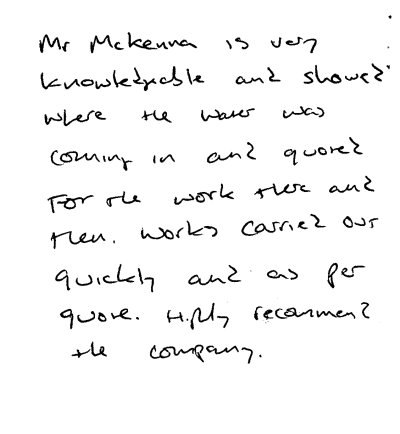 Mr McKenna is very
knowledgable and showed
where the water was
coming in and quoted
For the work there and
then. Works carried out
quickly and as per
quote. Highly recommend
the company.